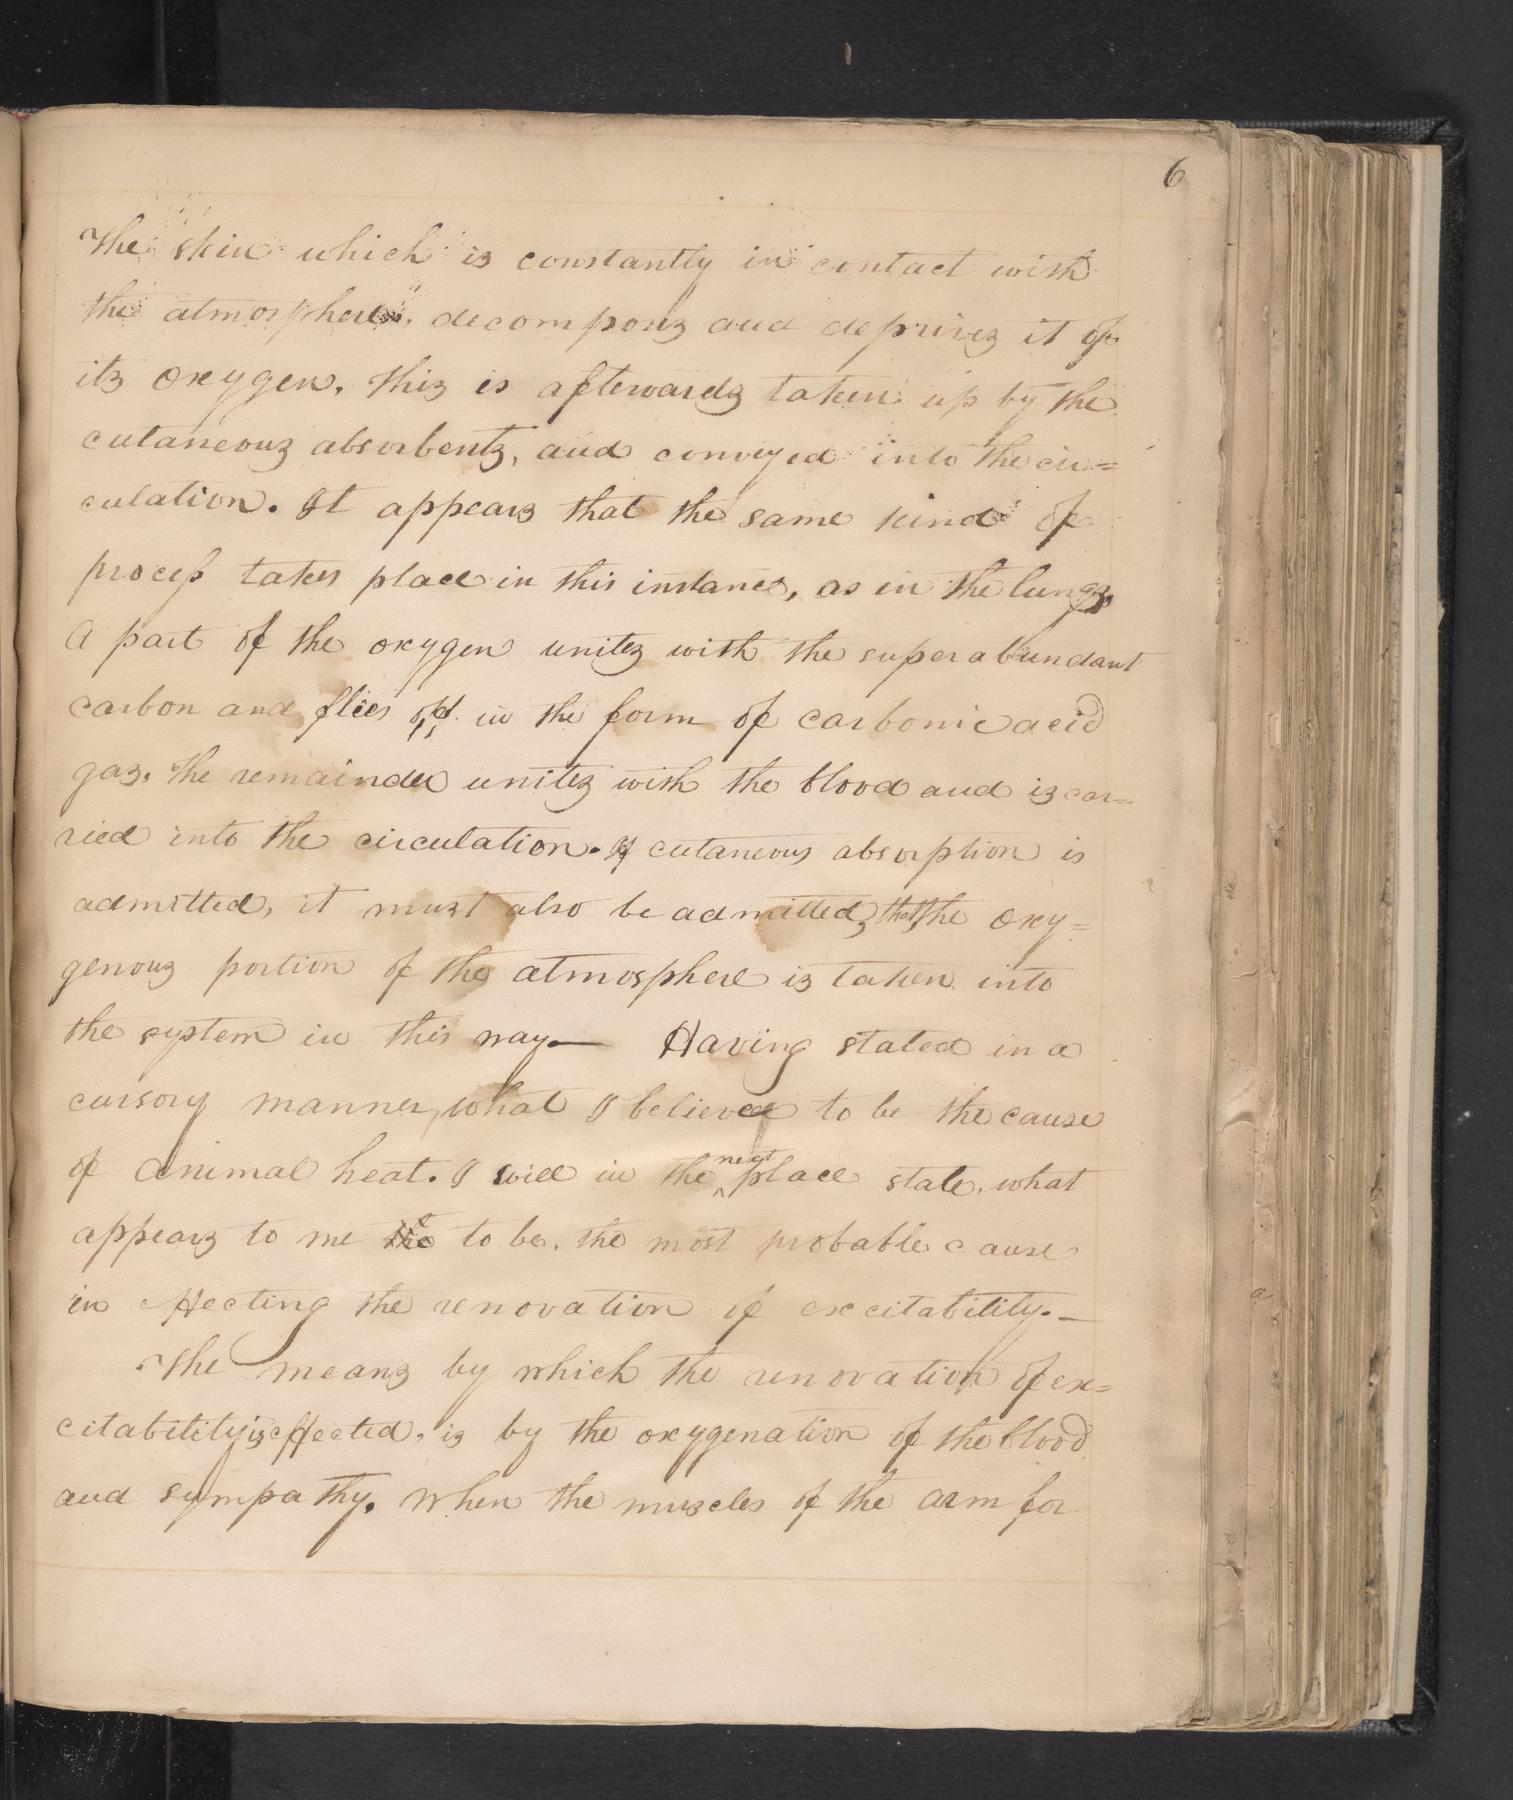 6
The skin which is constantly in contact with
the atmosphere, decomposes and deprives it of
its oxygen. This is afterwards taken up by the
cutaneous absorbents, and conveyed into the cir=
culation. It appears that the same kind of
process takes place in this instance, as in the lungs,
A part of the oxygen unites with the superabundant
carbon and flies off in the form of carbonic acid
gas. The remainder unites with the blood and is car=
ried into the circulation. If cutaneous absorption is
admitted, it must also be admitted, that the oxy=
genous portion of the atmosphere is taken into
the system in this way — Having stated in a
cursory manner, what I believe to be the cause
of animal heat. I will in the next place state, what
appears to me to be, the most probable cause
in effecting the renovation of excitability. —
The means by which the renovation of ex=
citability is effected, is by the oxygenation of the blood
and sympathy. When the muscles of the arm for